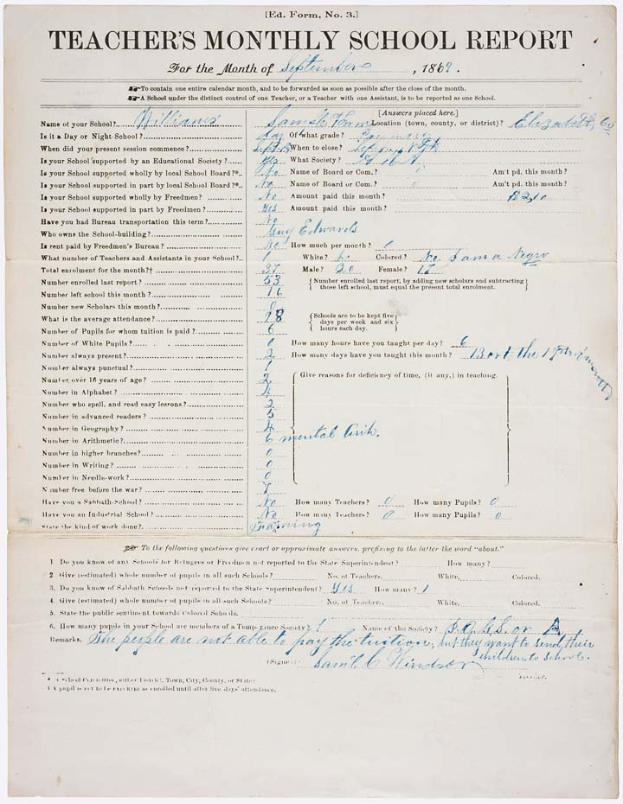 [Ed. Form, No. 3.]
TEACHER'S MONTHLY SCHOOL REPORT
For the Month of September, 1869.
To contain one entire calendar month, and to be forwarded as soon as possible after the close of the month.
A School under the distinct control of one Teacher, or a Teacher with one Assistant, is to be reported as one School.
[Answers placed here.]
Name of your School? Williams Location (town, county, or district)? Elizabeth Co
Is it a Day or Night School? Day Of what grade? Primary
When did your present session commence? When to close?
Is your School supported by an Educational Society? Yes What Society?
Is your School supported wholly by local School Board? No Name of Board or Com.? Am't pd. this month?
Is your School supported in part by local School Board? No Name of Board or Com.? Am't pd. this month?
Is your School supported wholly by Freedmen? No Amount paid this month?
Is your School supported in part by Freedmen? Yes Amount paid this month?
Have you had Bureau transportation this term? No
Who owns the School-building? Guy Edwards
Is rent paid by Freedmen's Bureau? No How much per month?
What number of Teachers and Assistants in your School? 1 White? Colored? No I am a Negro
Total enrolment for the month? 37 Male? 20 Female? 17
Number enrolled last report? 53 {Number enrolled last report, by adding new scholars and subtracting
Number left school this month? 16 those left school, must equal the present total enrolment.}
Number new Scholars this month? 0
What is the average attendance? 28 {Schools are to be kept five
days per week and six
hours each day.}
Number of Pupils for whom tuition is paid? 6
Number of White Pupils? 0 How many hours have you taught per day? 6
Number always present? 2 How many days have you taught this month? 13 or the
Number always punctual? 1
Number over 16 years of age? 2 Give reasons for deficiency of time, (if any,) in teaching.
Number in Alphabet? 4
Number who spell, and read easy lessons? 2
Number in advanced readers? 5
Number in Geography? 4
Number in Arithmetic? 6 mental Arith.
Number in higher branches? 0
Number in Writing? 0
Number in Needle-work? 0
Number free before the war? 7
Have you a Sabbath-School? No How many Teachers? 0 How many Pupils? 0
Have you an Industrial School? No How many Teachers? 0 How many Pupils? 0
State the kind of work done?
To the following questions give exact or approximate answers, prefixing to the latter the word "about."
1 Do you know of any Schools for Refugees or Freedmen not reported to the State Superintendent? How many?
2 Give (estimated) whole number of pupils in all such Schools? No. of Teachers, White, Colored,
3 Do you know of Sabbath Schools not reported to the State Superintendent? Yes How many? 1
4 Give (estimated) whole number of pupils in all such Schools? No. of Teachers, White, Colored,
5 State the public sentiment towards Colored Schools.
6 How many pupils in your School are members of a Temperance Society? Name of the Society?
Remarks. The people are not able to pay the tuition, but they want to send their
children to School.
(Signed) Sam'l C Windsor
* A School Committee, either District, Town, City, County, or State.
† A pupil is not to be reckoned as enrolled until after five days' attendance.